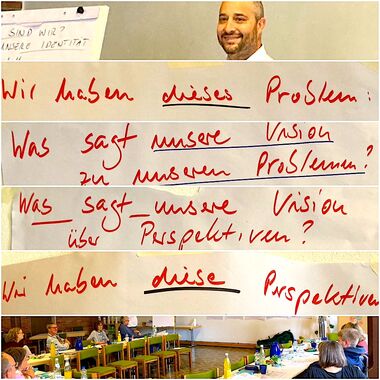 SIND WIR?
UNSERE IDENTITÄT
Wir haben dieses Problem:
Was sagt unsere Vision
zu unseren Problemen?
Was sagt unsere Vision
über Perspektiven?
Wir haben diese Perspektiven